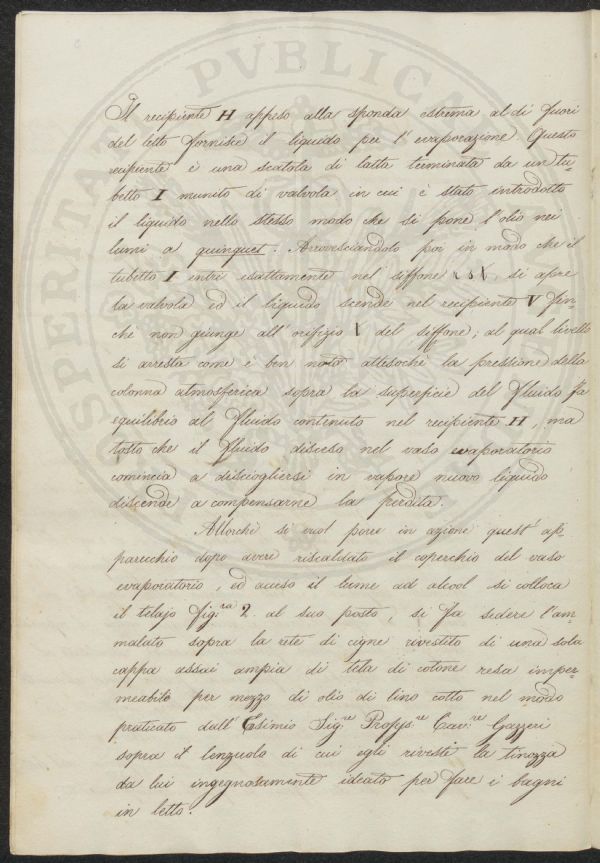 Il recipiente H appeso alla sponda estrema al di fuori
del letto fornisce il liquido per l'evaporazione. Questo
recipiente è una scatola di latta terminata da un tu-
betto I munito di valvola in cui è stato introdotto
il liquido nello stesso modo che si pone l'olio nei
lumi a quinquet. Arrovesciandolo poi in modo che il
tubetto I entri esattamente nel siffone si apre
la valvola ed il liquido scende nel recipiente V fin
che non giunge all'orifizio X del siffone; al qual livello
si arresta come è ben noto attesoché la pressione della
colonna atmosferica sopra la superficie del fluido fa
equilibrio al fluido contenuto nel recipiente H, ma
tosto che il fluido disceso nel vaso evaporatorio
comincia a disciogliersi in vapore nuovo liquido
discende a compensarne la perdita.
Allorché si vuol porre in azione quest'ap-
parecchio dopo avere riscaldato il coperchio del vaso
evaporatorio, ed acceso il lume ad alcool si colloca
il telajo fig:ra 2. al suo posto, si fa sedere l'am-
malato sopra la rete di cigne rivestito di una sola
cappa assai ampia di tela di cotone resa imper-
meabile per mezzo di olio di lino cotto nel modo
praticato dall'Esimio Sig:re Profess:re Cav:re Gazzeri
sopra il lenzuolo di cui egli riveste la tinozza
da lui ingegnosamente ideata per fare i bagni
in letto.
PVBLICA